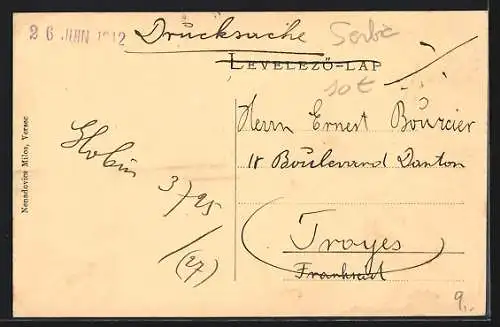 26 JUIN 1912
Drucksache
Serbie
LEVELEZŐ-LAP
10 €
Herrn Ernest Bourcier
18 Boulevard Danton
3/25
(27)
Troyes
Frankreich
Nenadovics Milos, Versec
9,-